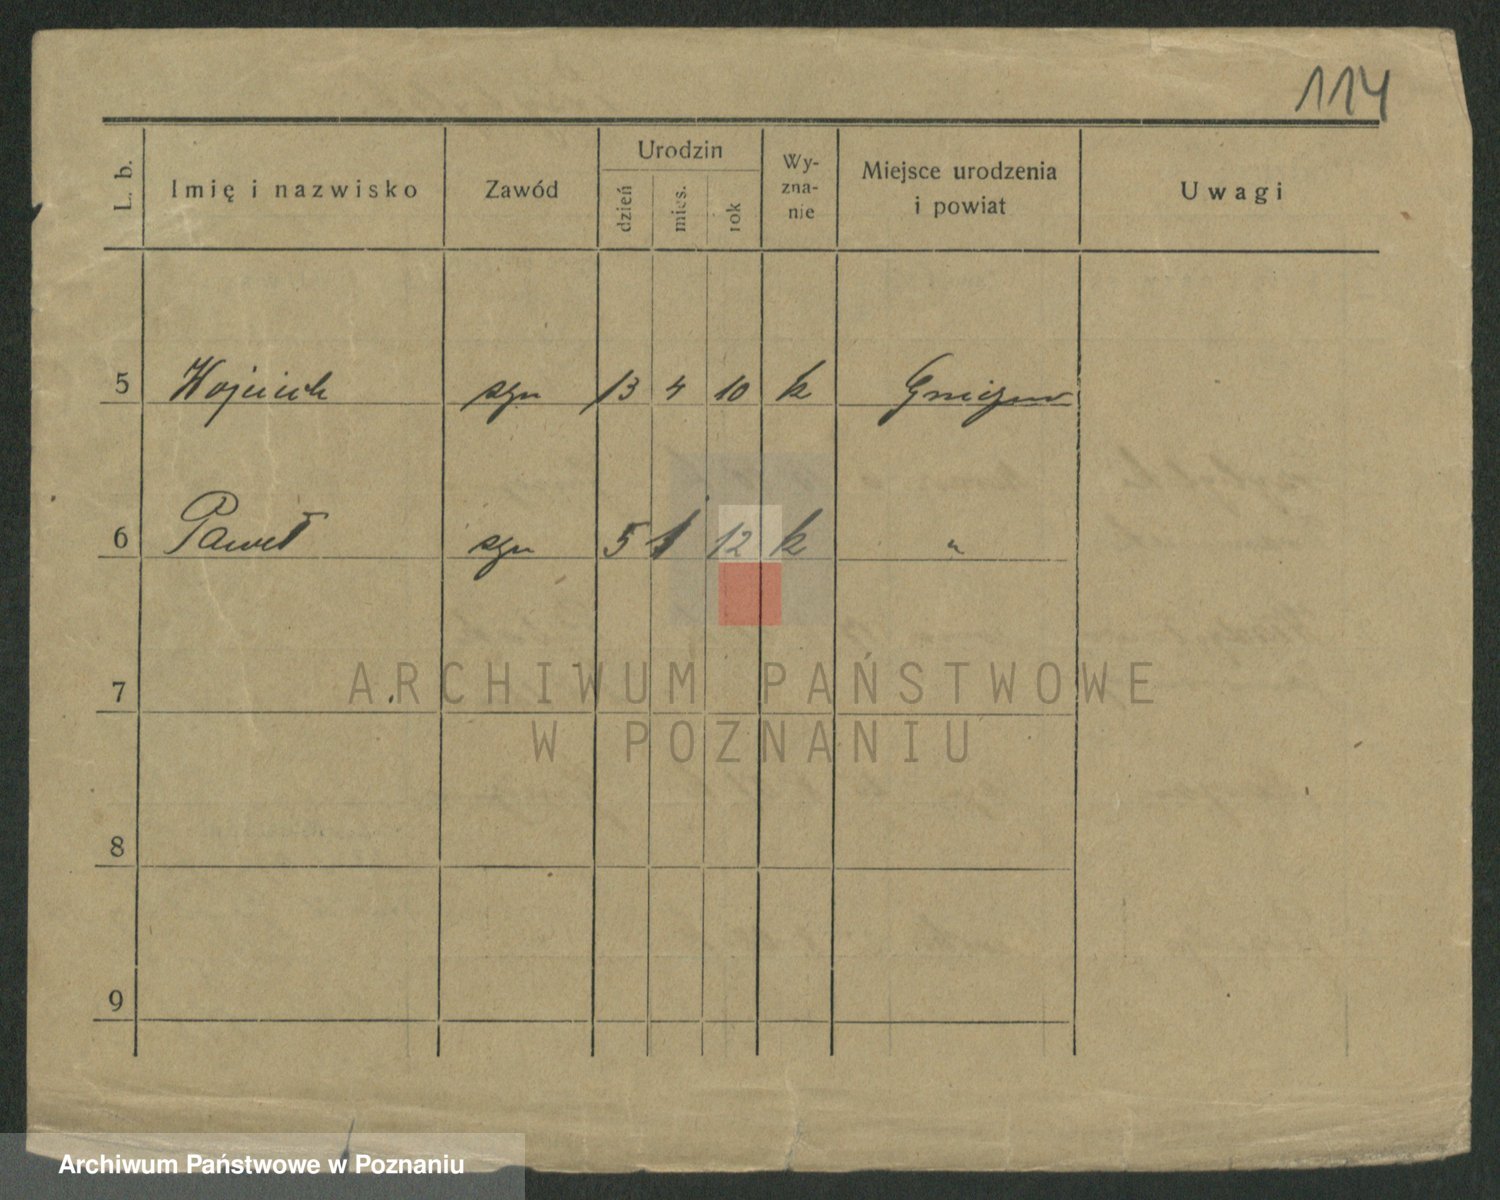 114
L. b. Imię i nazwisko Zawód Urodzin dzień mies. rok Wy-zna-nie Miejsce urodzenia i powiat Uwagi
5 Wojciech syn 13 4 10 k Gniezno
6 Paweł syn 5 1 12 k "
7
ARCHIWUM PAŃSTWOWE
W POZNANIU
8
9
Archiwum Państwowe w Poznaniu